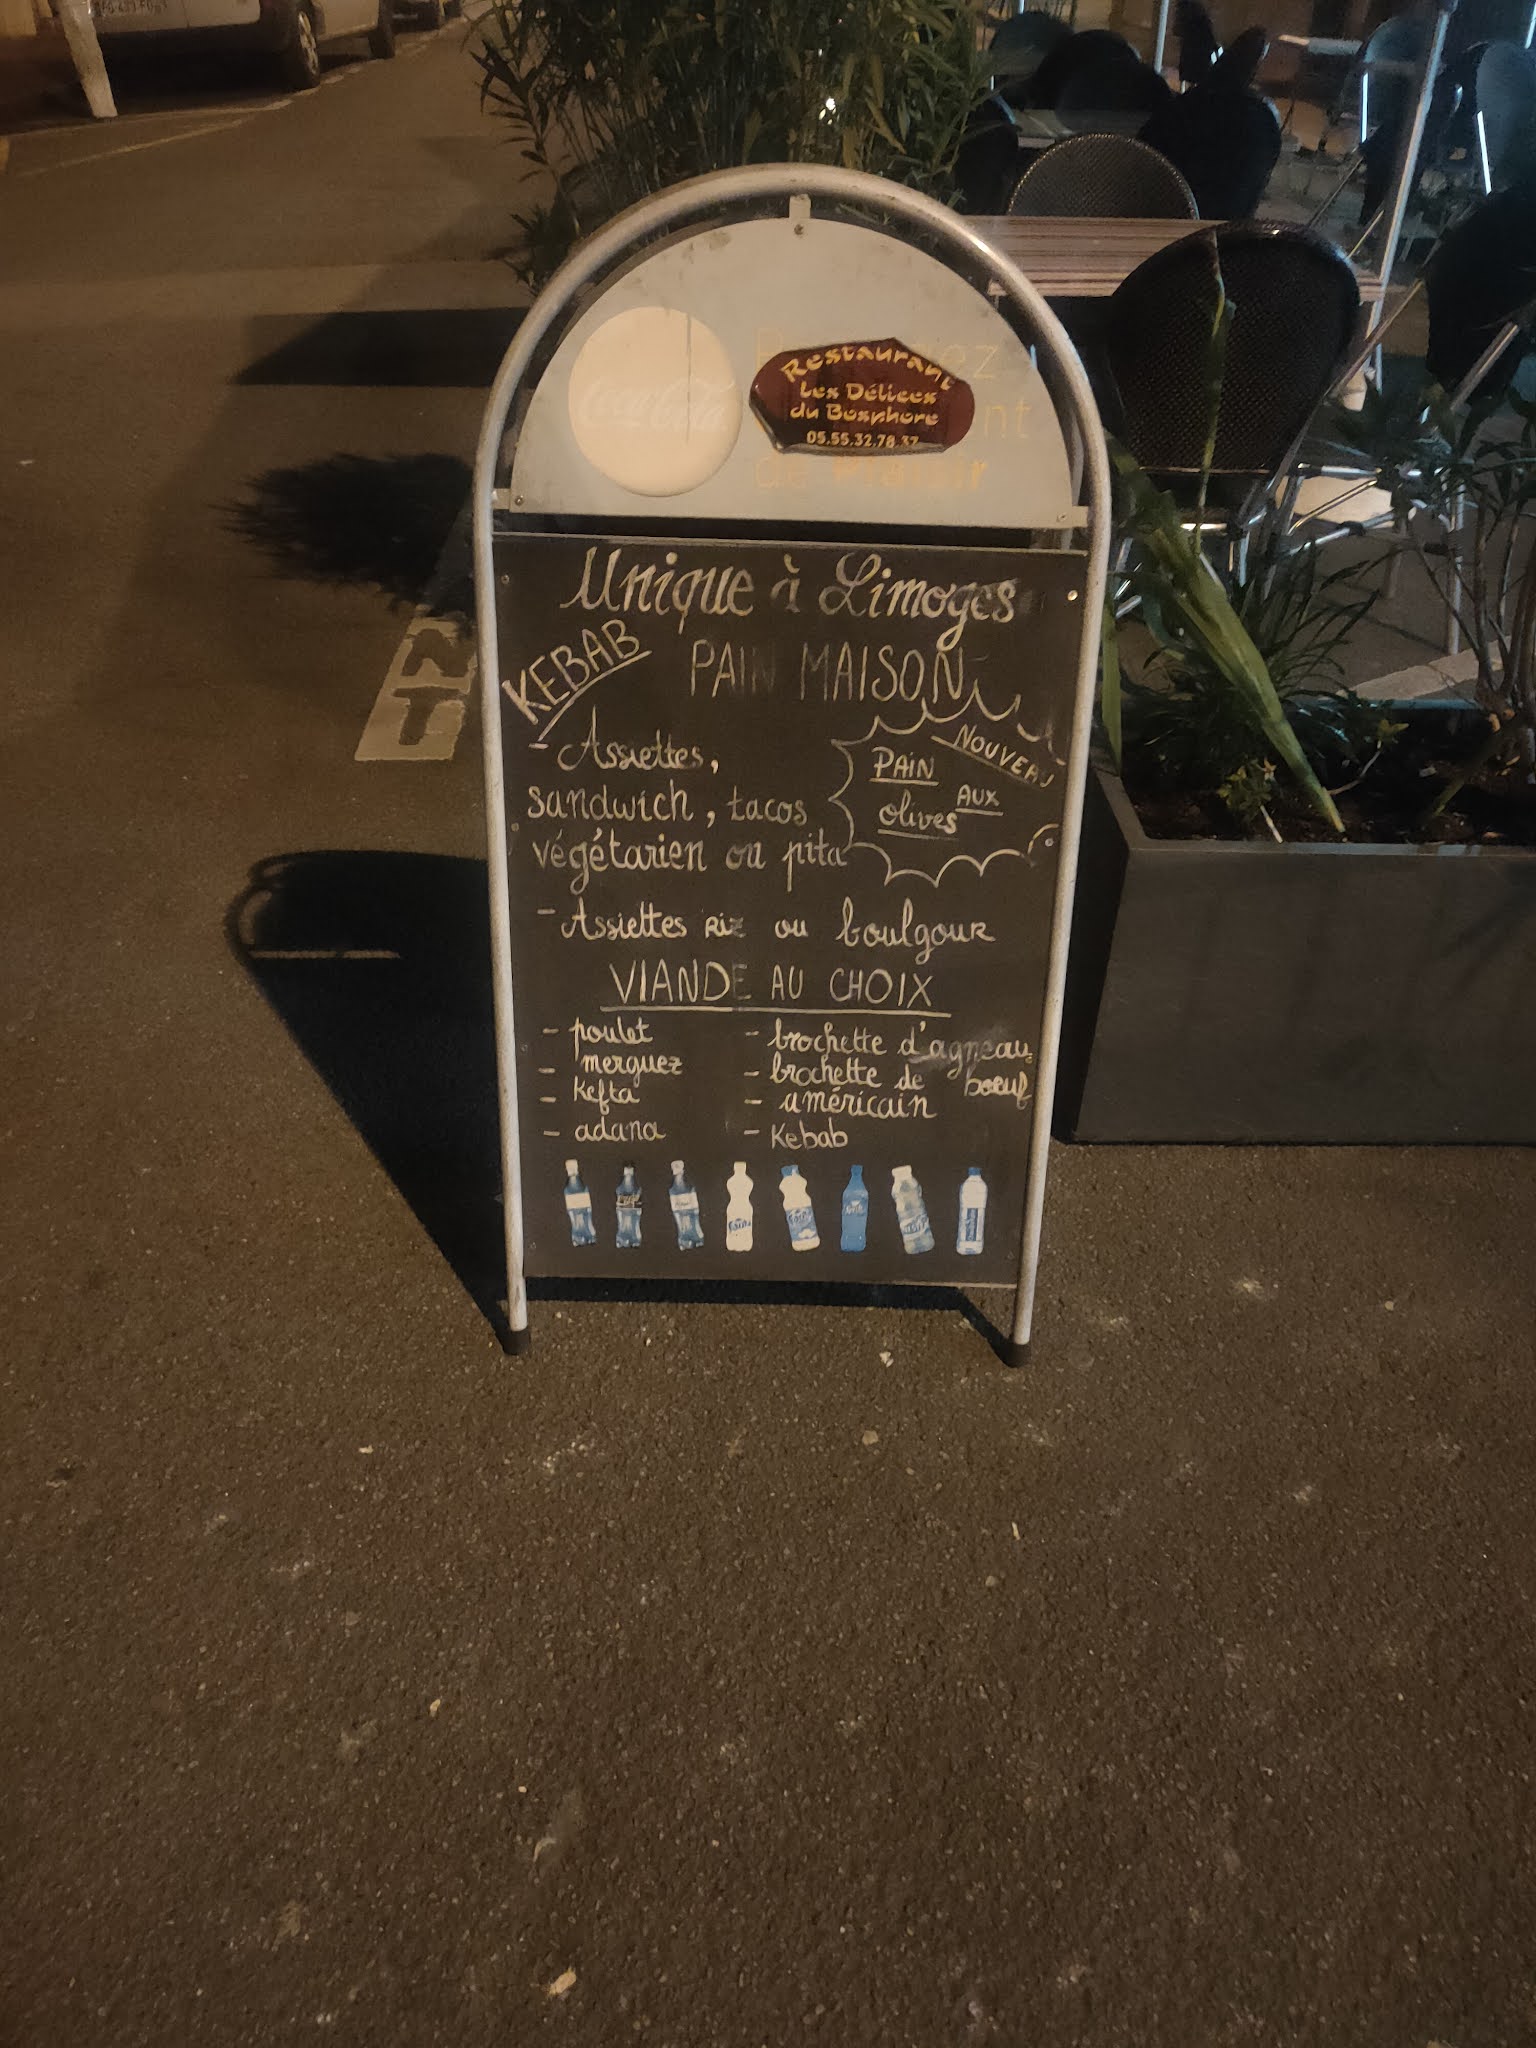 Coca-Cola
Restaurant
Les Délices
du Bosphore
05.55.32.78.37
de Plaisir
Unique à Limoges
KEBAB
PAIN MAISON
- Assiettes,
sandwich, tacos
végétarien ou pita
NOUVEAU
PAIN
AUX
olives
- Assiettes Riz ou boulgour
VIANDE AU CHOIX
- poulet
- merguez
- Kefta
- adana
- brochette d'agneau
- brochette de boeuf
- américain
- Kebab